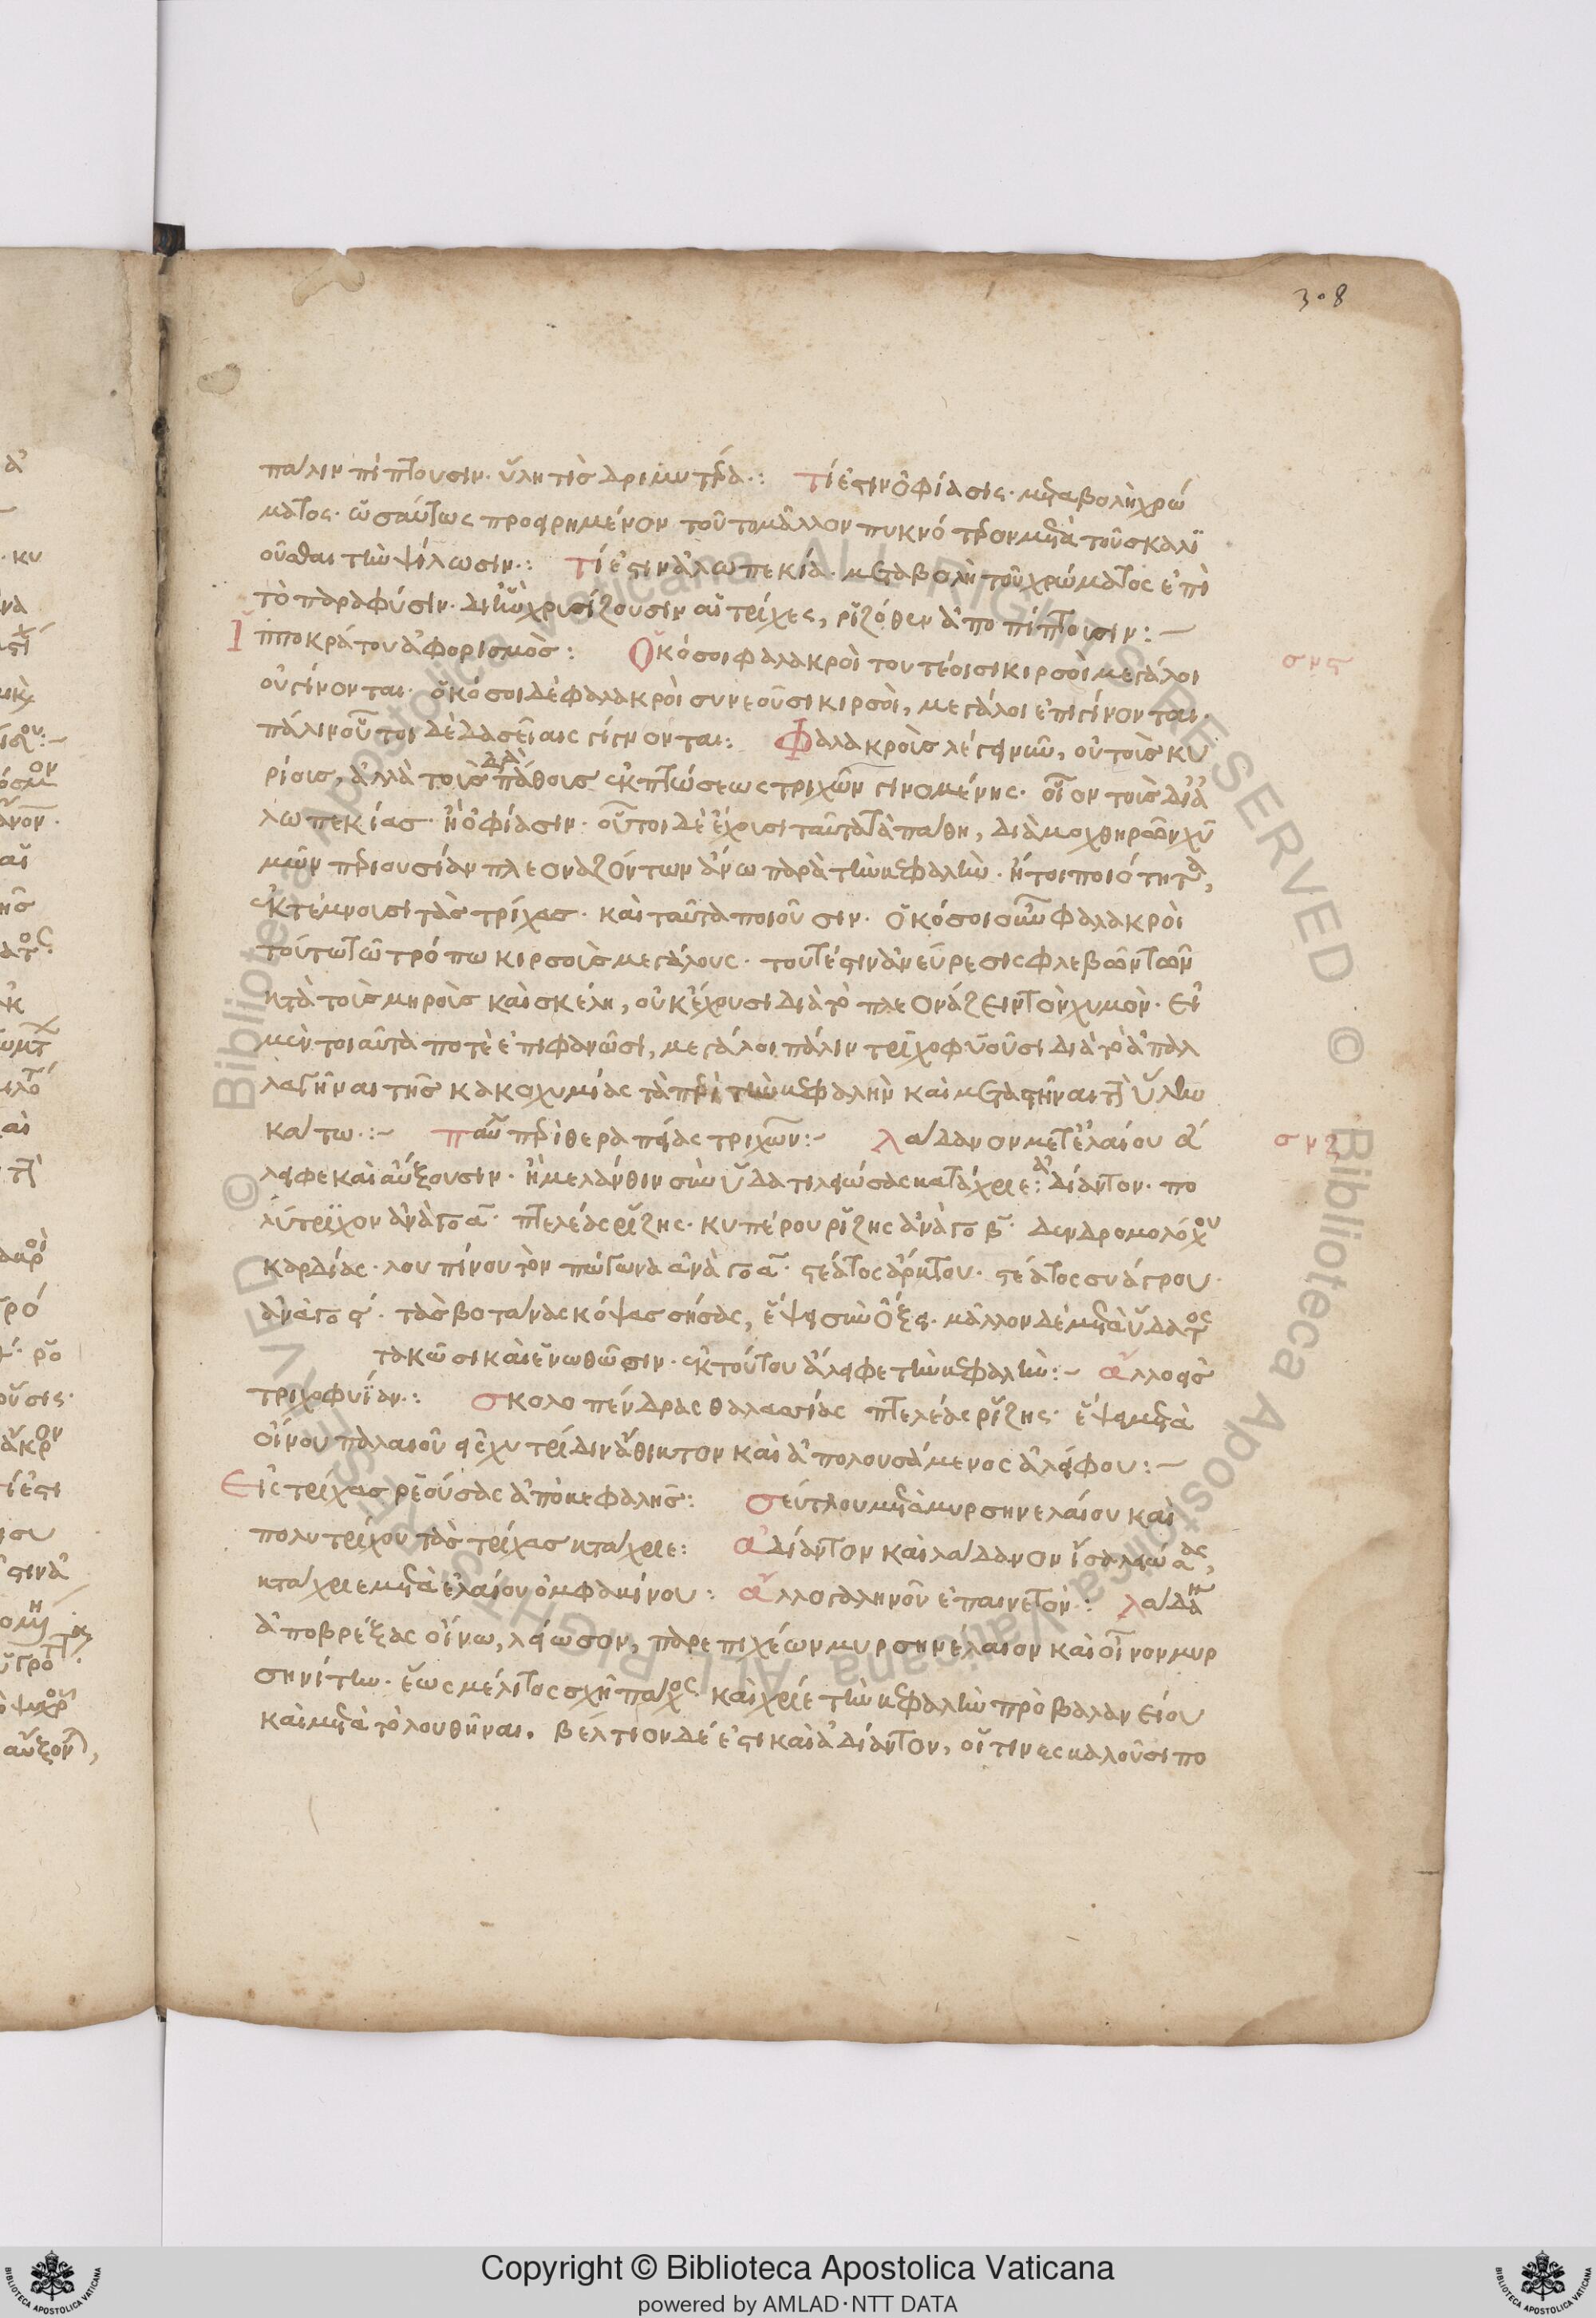 308
πάλιν πίπτουσιν· ὕλη τίς δριμυτέρα·: τί ἐστιν ὀφίασις· μεταβολὴ χρώ
ματος· ὡσαύτως προειρημένον τοῦτο μᾶλλον πυκνότερον μετὰ τοῦ σκαλι
οῦσθαι τὴν ψίλωσιν·: τί ἐστιν ἀλωπεκία· μεταβολὴ τοῦ χρώματος ἐπὶ
τὸ παραφύσιν· δι' ἣν χρυσίζουσιν αἱ τρίχες, ριζόθεν ἀποπίπτουσιν:-
Ἱπποκράτου ἀφορισμὸς: Ὁκόσοι φαλακροὶ τουτέοισι κιρσοὶ μεγάλοι σνς
οὐ γίνονται· ὁκόσοι δὲ φαλακροὶ συνεοῦσι κιρσοὶ, μεγάλοι ἐπιγίνονται·
πάλιν οὗτοι δὲ δασεῖαις γίγνονται: Φαλακροὺς λέγει νῦν, οὐ τοῖς κυ
ρίοις, ἀλλὰ τοὺς διὰ πάθους ἐκπτώσεως τριχῶν γινομένης· οἷον τοὺς δι' ἀ
λωπεκίας· ἢ ὀφίασιν· οὗτοι δὲ ἔχουσι ταῦτα τὰ πάθη, διὰ μοχθηρῶν χυ
μῶν περιουσίαν πλεοναζόντων ἄνω παρὰ τὴν κεφαλὴν· ἤτοι ποιότητα,
ἐκτέμνουσι τὰς τρίχας· καὶ ταῦτα ποιοῦσιν· ὁκόσοι οὖν φαλακροὶ
τούτω τῶ τρόπω κιρσοὺς μεγάλους· τουτέστιν ἀνεύρεσις φλεβῶν τῶν
κατὰ τοὺς μηροὺς καὶ σκέλη, οὐκ ἔχουσι διὰ τὸ πλεονάζειν τὸν χυμὸν· εἰ
μέν τοι αὐτὰ ποτὲ ἐπιφανῶσι, μεγάλοι πάλιν τριχοφυοῦσι διὰ τὸ ἀπαλ
λαγῆναι τῆς κακοχυμίας τὰ περὶ τὴν κεφαλὴν καὶ μεταστῆναι τὴν ὕλην
κάτω·:- Παύ περὶ θεραπείας τριχῶν:- Λάδανον μετ' ἐλαίου ἄ σνζ
λειφε καὶ αὔξουσιν· ἢ μελάνθιν σὺν ὕδατι λειώσας κατάχριε: ἀδίαντον· πο
λύτριχον ἀνὰ γο α· πτελέας ρίζης· κυπέρου ρίζης ἀνὰ γο β· δενδρομολόχου
καρδίας· λουπίνου τὸν πώγωνα ἀνὰ γο α· στέατος ἄρκτου· στέατος συάγρου·
ἀνὰ γο ϛ· τὰς βοτάνας κόψας σήσας, ἕψει σὺν ὄξει· μᾶλλον δὲ μετὰ ὕδατος
τακῶσι καὶ ἑνωθῶσιν· ἐκ τούτου ἄλειφε τὴν κεφαλὴν:- ἄλλο εἰς
τριχοφυΐαν·: Σκολοπένδρας θαλασσίας πτελέας ρίζης· ἕψει μετὰ
οἴνου παλαιοῦ εἰς χυτρίδιν ἄθικτον καὶ ἀπολουσάμενος ἀλείφου:-
Εἰς τρίχας ρεούσας ἀπὸ κεφαλῆς: Σεύτλου μετὰ μυρσηνελαίου καὶ
πολυτρίχου τὰς τρίχας κατάχριε: Ἀδίαντον καὶ λάδανον ἴσα λειώσας,
κατάχριε μετὰ ἐλαίου ὀμφακίνου: ἄλλο γαληνοῦ ἐπαινετόν·: Λάδανην
ἀποβρέξας οἴνω, λείωσον, παρεπιχέων μυρσηνέλαιον καὶ οἶνον μυρ
σηνίτην· ἕως μέλιτος σχῆ πάχος· καὶ χρίε τὴν κεφαλὴν πρὸ βαλανείου
καὶ μετὰ τὸ λουθῆναι. βέλτιον δέ ἐστι καὶ ἀδίαντον, οὗ τινες καλοῦσι πο
Copyright © Biblioteca Apostolica Vaticana
powered by AMLAD·NTT DATA